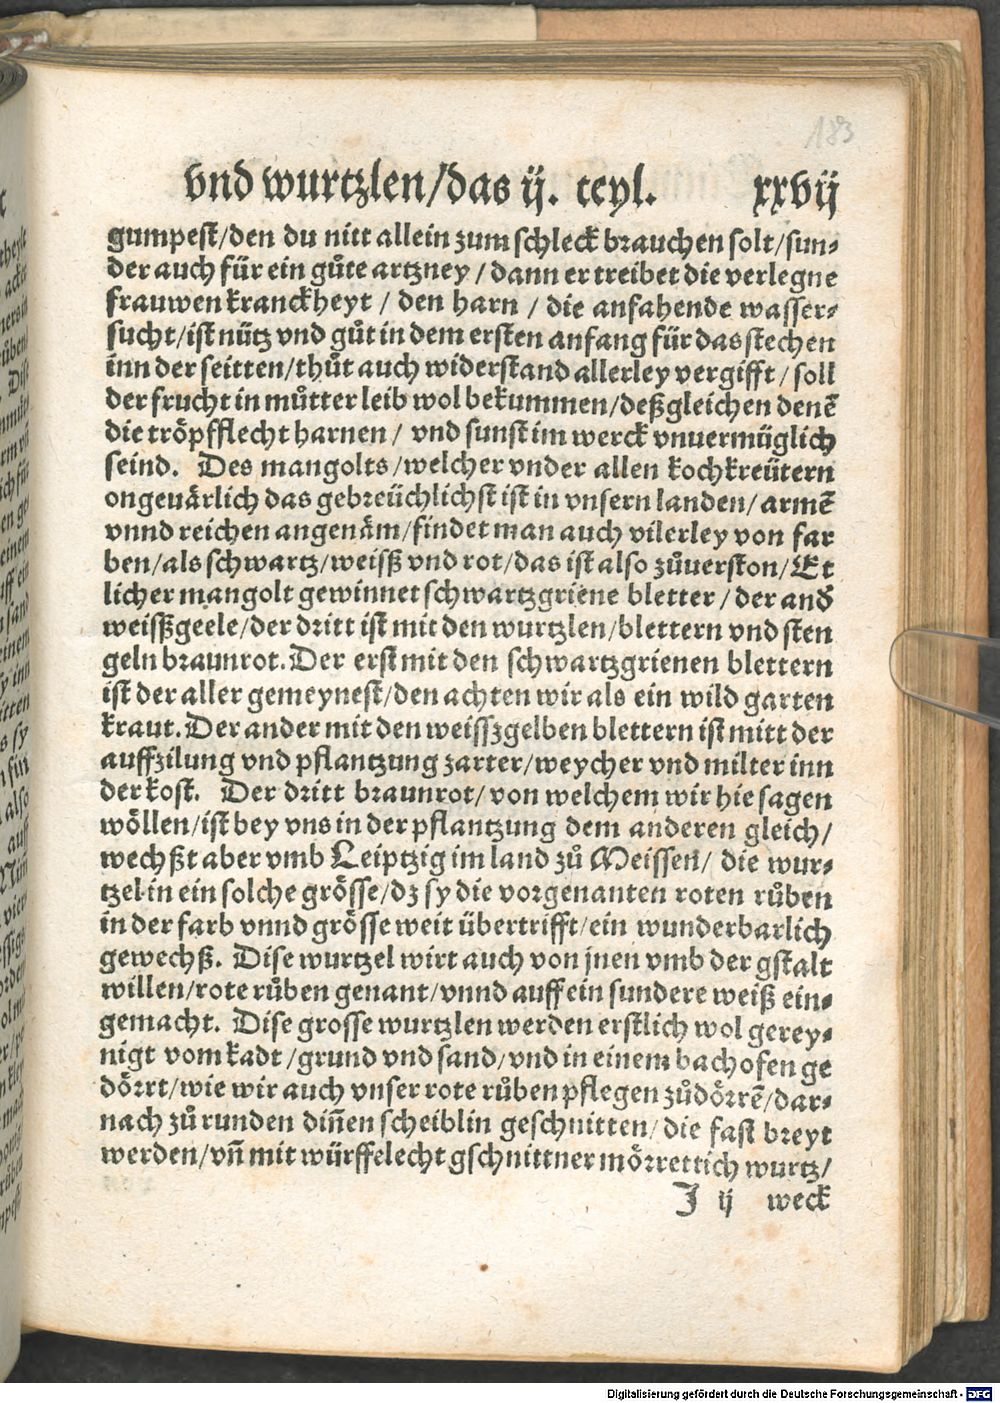 183
vnd wurtzlen/das ij. teyl. xxvij
gumpest/den du nitt allein zum schleck brauchen solt/sun⸗
der auch für ein gůte artzney/dann er treibet die verlegne
frauwen kranckheyt/den harn/die anfahende wasser⸗
sucht/ist nütz vnd gůt in dem ersten anfang für das stechen
inn der seitten/thůt auch widerstand allerley vergifft/soll
der frucht in můtter leib wol bekummen/deßgleichen denē
die tröpfflecht harnen/vnd sunst im werck vnuermüglich
seind. Des mangolts/welcher vnder allen kochkreütern
ongeuärlich das gebreüchlichst ist in vnsern landen/armē
vnnd reichen angenäm/findet man auch vilerley von far
ben/als schwartz/weiß vnd rot/das ist also zůuerston/Et
licher mangolt gewinnet schwartzgriene bletter/der and̄
weißgeele/der dritt ist mit den wurtzlen/blettern vnd sten
geln braunrot. Der erst mit den schwartzgrienen blettern
ist der aller gemeynest/den achten wir als ein wild garten
kraut. Der ander mit den weisszgelben blettern ist mitt der
auffzilung vnd pflantzung zarter/weycher vnd milter inn
der kost. Der dritt braunrot/von welchem wir hie sagen
wöllen/ist bey vns in der pflantzung dem anderen gleich/
wechßt aber vmb Leiptzig im land zů Meissen/die wur⸗
tzel in ein solche grösse/dz sy die vorgenanten roten růben
in der farb vnnd grösse weit übertrifft/ein wunderbarlich
gewechß. Dise wurtzel wirt auch von jnen vmb der gstalt
willen/rote růben genant/vnnd auff ein sundere weiß ein⸗
gemacht. Dise grosse wurtzlen werden erstlich wol gerey⸗
nigt vom kadt/grund vnd sand/vnd in einem bachofen ge
dörrt/wie wir auch vnser rote růben pflegen zůdörrē/dar⸗
nach zů runden diñen scheiblin geschnitten/die fast breyt
werden/vñ mit würffelecht gschnittner mörrettich wurtz/
J ij weck
Digitalisierung gefördert durch die Deutsche Forschungsgemeinschaft - DFG